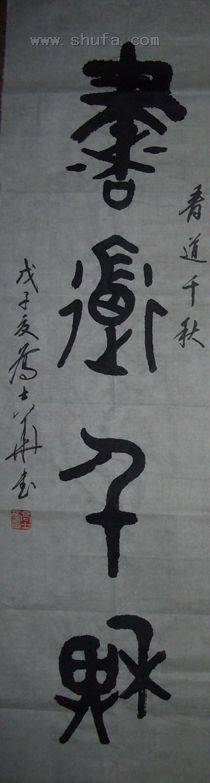 www.shufa.com
書道千秋
書道千秋
戊子夏